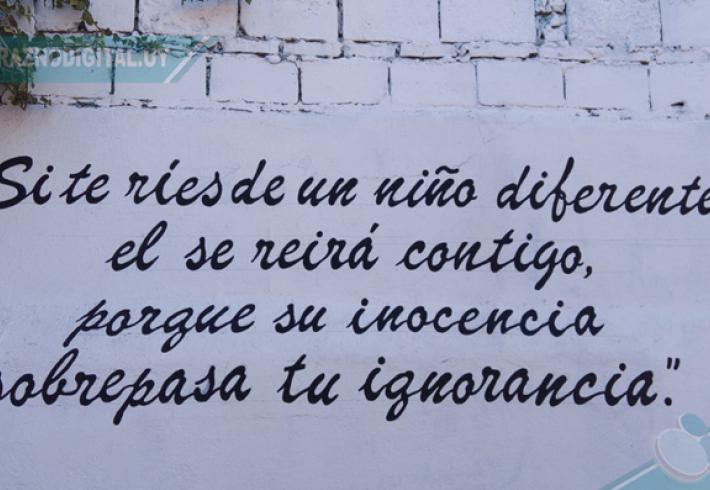 RAZNODIGITAL.UY
Si te ríes de un niño diferente
el se reirá contigo,
porque su inocencia
sobrepasa tu ignorancia."